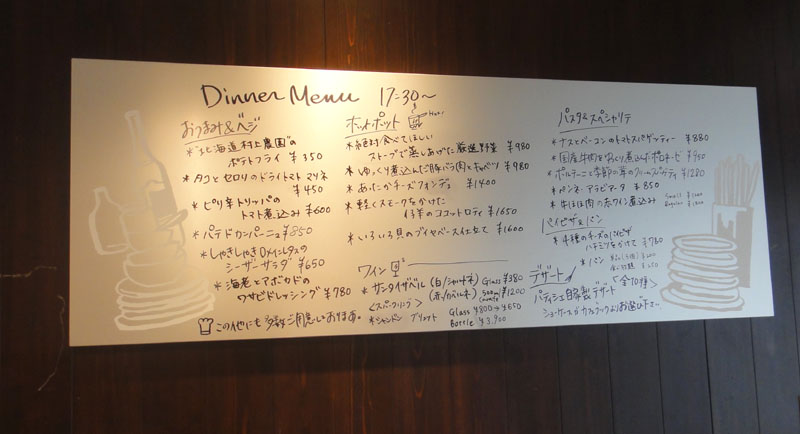 Dinner Menu 17:30〜
おつまみ&ベジ
*北海道村上農園の
ポテトフライ ¥350
*タコとセロリのドライトマトマリネ
¥450
*ピリ辛トリッパの
トマト煮込み ¥600
*パテドカンパーニュ ¥850
*しゃきしゃきロメインレタスの
シーザーサラダ ¥650
*海老とアボカドの
ワサビドレッシング ¥780
この他にも多数ご用意しております。
ホットポット Hot!
*絶対食べてほしい
ストーブで蒸しあげた厳選野菜 ¥980
*ゆっくり煮込んだ豚バラ肉とキャベツ ¥980
*あったかチーズフォンデュ ¥1400
*軽くスモークをかけた
仔羊のココットロティ ¥1650
*いろいろ貝のブイヤベース仕立て ¥1600
ワイン
*サンタイザベル (白/シャルドネ) Glass ¥380
(赤/カベルネ) 500ml ¥1200
<スパークリング>
*シャンドン ブリュット Glass ¥800→¥650
Bottle ¥3,900
パスタ&スペシャリテ
*ナスとベーコンのトマトスパゲッティー ¥880
*国産牛肉をじっくり煮込んだボロネーゼ ¥950
*ポルチーニと季節の茸のクリームスパゲティ ¥1280
*ペンネ・アラビアータ ¥850
*牛ほほ肉の赤ワイン煮込み Small
Regular
パイピザ&パン
*4種のチーズのパイピザ
ハチミツをかけて ¥780
*パン
デザート 〈全10種〉
パティシエ自家製デザート
ショーケースかカフェブックよりお選び下さい。